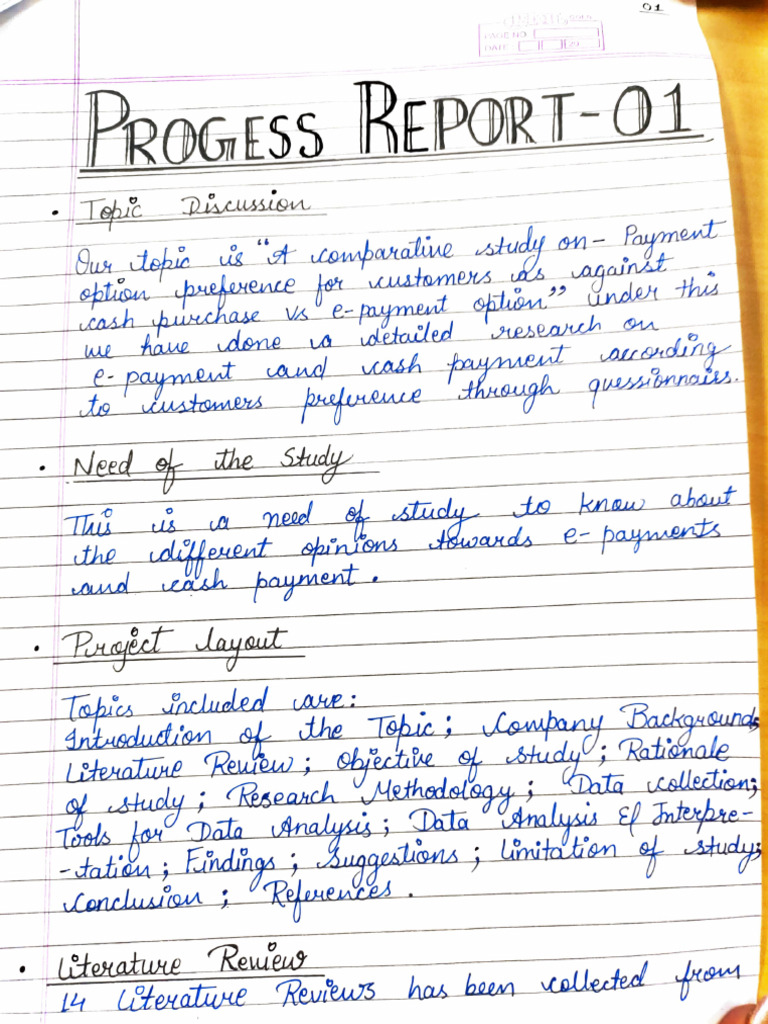 01
PAGE NO.
DATE
PROGESS REPORT-01
• Topic Discussion
Our topic is "A comparative study on- Payment
option preference for customers as against
cash purchase vs e-payment option" under this
we have done a detailed research on
e-payment and cash payment according
to customers preference through questionnaires.
• Need of the Study
This is a need of study to know about
the different opinions towards e-payments
and cash payment.
• Project layout
Topics included are:
Introduction of the Topic; Company Background;
Literature Review; Objective of study; Rationale
of study; Research Methodology; Data collection;
Tools for Data Analysis; Data Analysis & Interpre-
-tation; Findings; Suggestions; limitation of study;
conclusion; References.
• Literature Review
14 Literature Reviews has been collected from